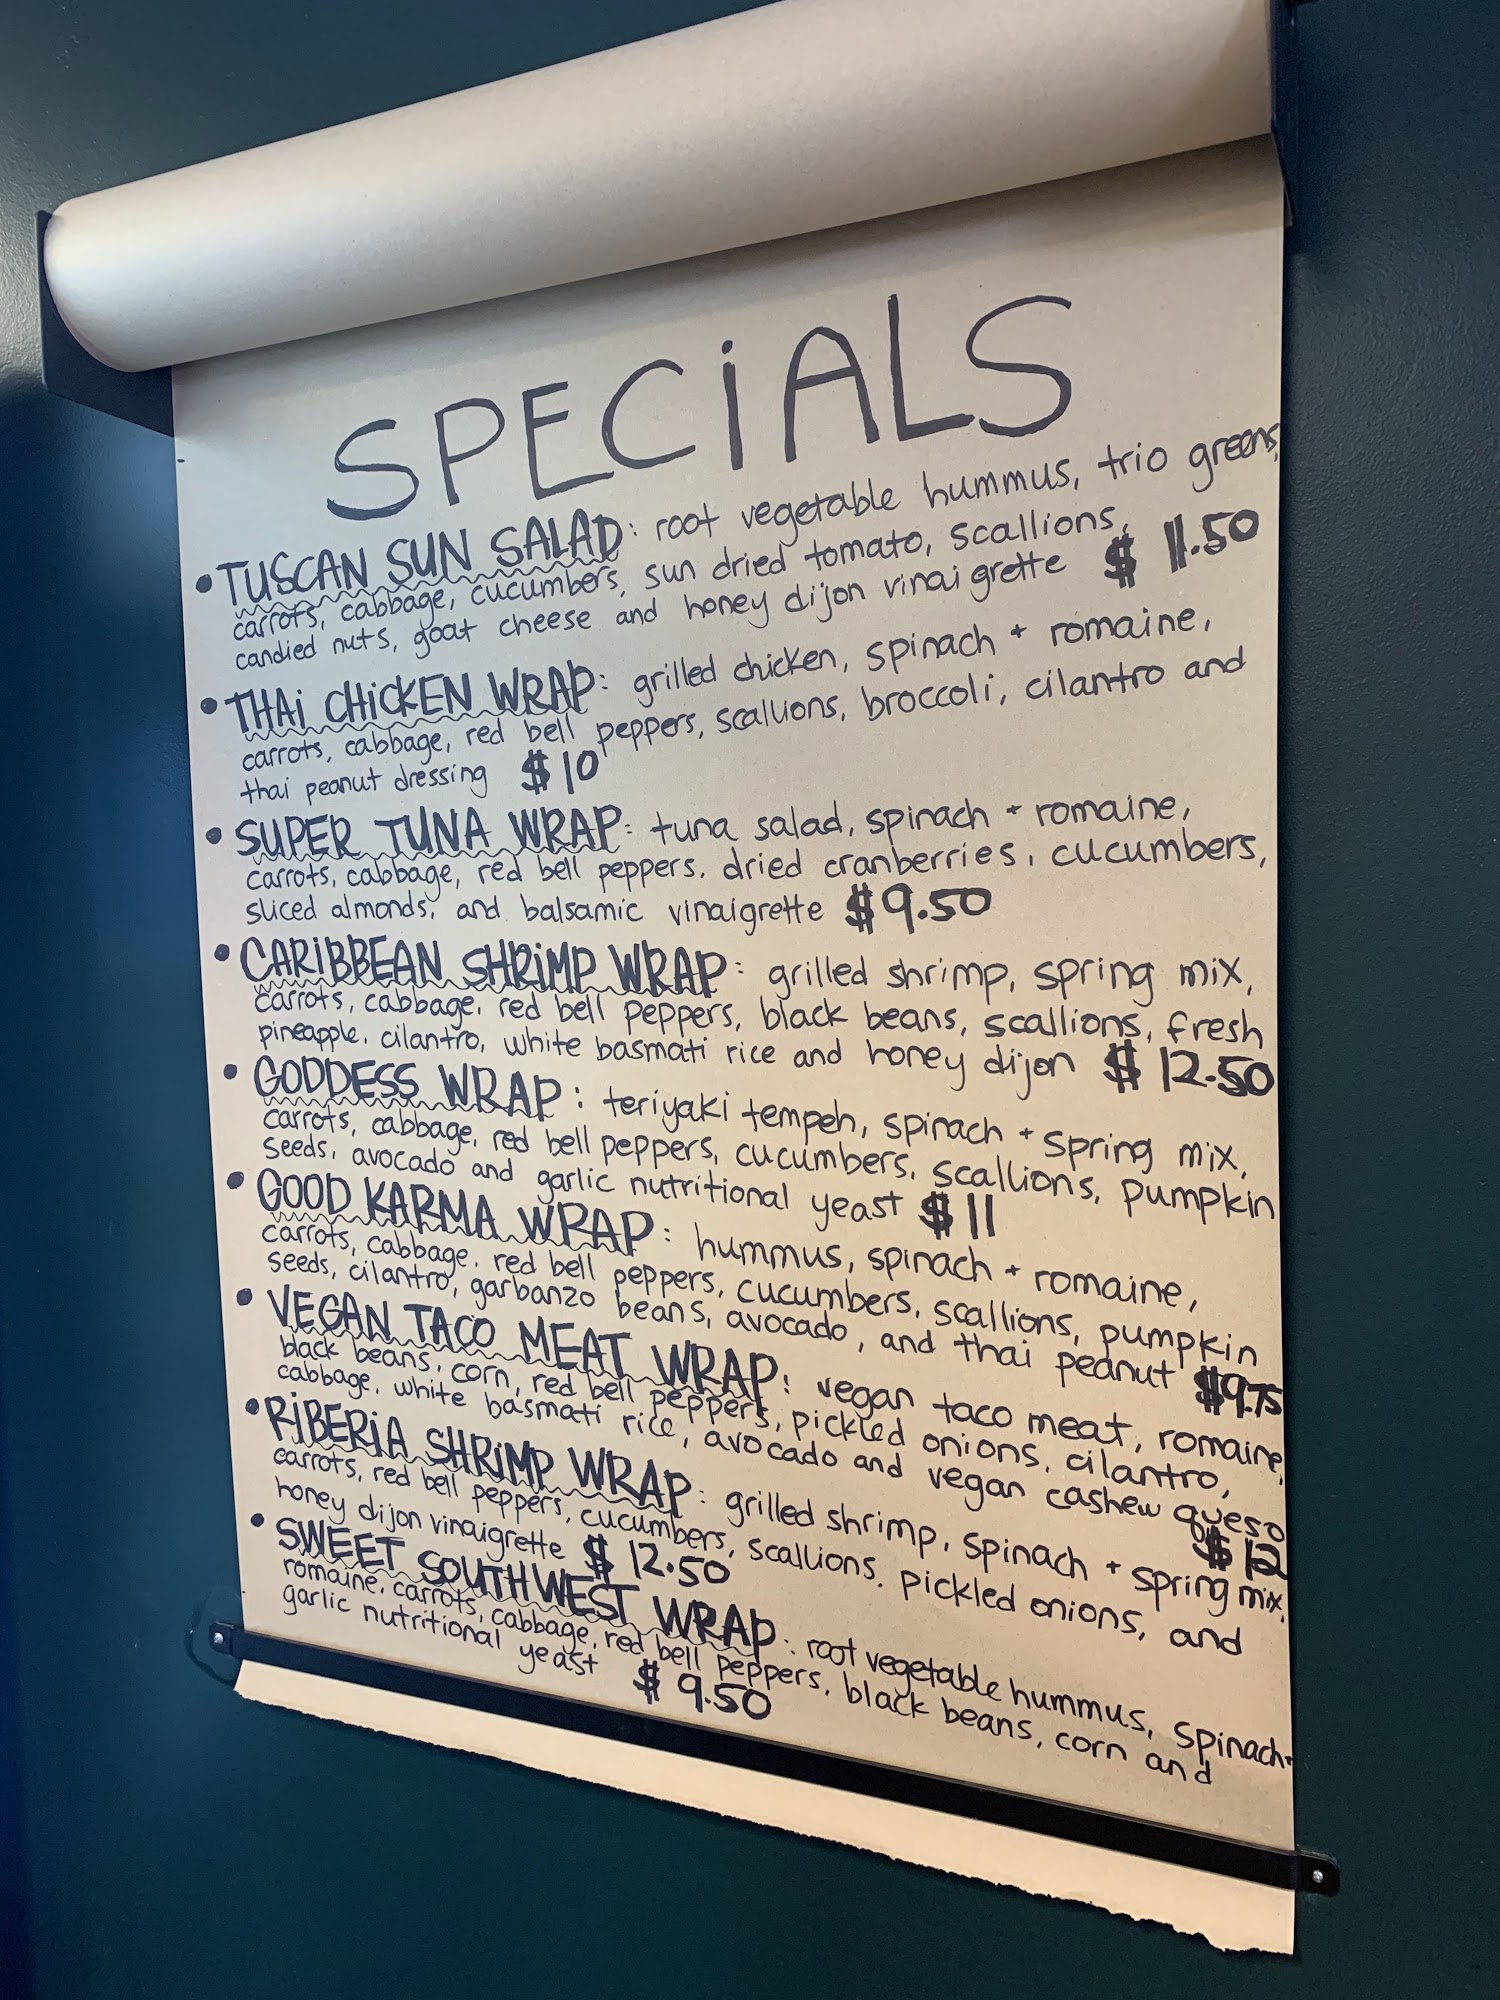 SPECiALS
• TUSCAN SUN SALAD: root vegetable hummus, trio greens,
carrots, cabbage, cucumbers, sun dried tomato, scallions,
candied nuts, goat cheese and honey dijon vinaigrette $ 11.50
• THAi CHiCKEN WRAP: grilled chicken, spinach + romaine,
carrots, cabbage, red bell peppers, scallions, broccoli, cilantro and
thai peanut dressing $10
• SUPER TUNA WRAP: tuna salad, spinach + romaine,
carrots, cabbage, red bell peppers, dried cranberries, cucumbers,
sliced almonds, and balsamic vinaigrette $9.50
• CARiBBEAN SHRiMP WRAP: grilled shrimp, spring mix,
carrots, cabbage, red bell peppers, black beans, scallions, fresh
pineapple, cilantro, white basmati rice and honey dijon $ 12.50
• GODDESS WRAP: teriyaki tempeh, spinach + spring mix,
carrots, cabbage, red bell peppers, cucumbers, scallions, pumpkin
seeds, avocado and garlic nutritional yeast $11
• GOOD KARMA WRAP: hummus, spinach + romaine,
carrots, cabbage, red bell peppers, cucumbers, scallions, pumpkin
seeds, cilantro, garbanzo beans, avocado, and thai peanut $9.75
• VEGAN TACO MEAT WRAP: vegan taco meat, romaine,
black beans, corn, red bell peppers, pickled onions, cilantro,
cabbage, white basmati rice, avocado and vegan cashew queso
$12
• RiBERiA SHRiMP WRAP: grilled shrimp, spinach + spring mix,
carrots, red bell peppers, cucumbers, scallions, pickled onions, and
honey dijon vinaigrette $ 12.50
• SWEET SOUTHWEST WRAP: root vegetable hummus, spinach+
romaine, carrots, cabbage, red bell peppers, black beans, corn and
garlic nutritional yeast $ 9.50